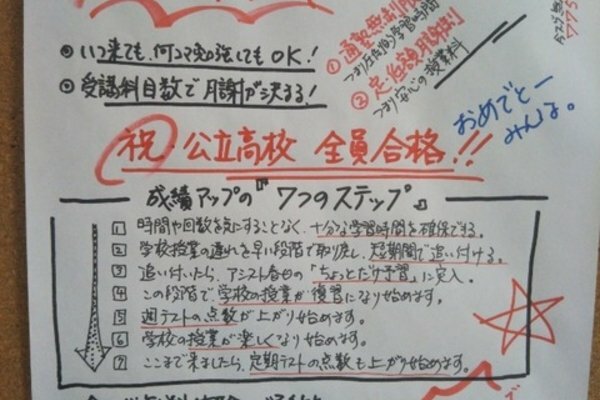 ◎ いつ来ても、何コマ勉強してもOK!
◎ 受講科目数で月謝が決まる!
① 通塾無制限
つまり圧倒的な学習時間
② 定低額月謝制
つまり安心の授業料
おめでとー
みんな。
祝・公立高校 全員合格!!
成績アップの『7つのステップ』
1 時間や回数を気にすることなく、十分な学習時間を確保できる。
2 学校授業の遅れを早い段階で取り戻し、短期間で追い付ける。
3 追い付いたら、アシスト春日の「ちょっとだけ予習」に突入。
4 この段階で学校の授業が復習になり始めます。
5 週テストの点数が上がり始めます。
6 学校の授業が楽しくなり始めます。
7 ここまで来ましたら、定期テストの点数も上がり始めます。